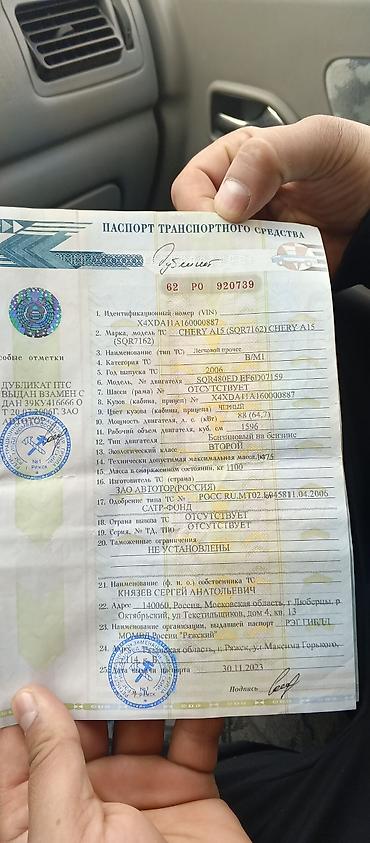 ПАСПОРТ ТРАНСПОРТНОГО СРЕДСТВА
Дубликат
62 РО 920739
собые отметки
ДУБЛИКАТ ПТС
ВЫДАН ВЗАМЕН С
ДАН 39КУ416666 О
АВТОТОР
1. Идентификационный номер (VIN)
X4XDA11A160000887
2. Марка, модель ТС CHERY A15 (SQR7162) CHERY A15
(SQR7162)
3. Наименование (тип ТС) Легковой прочее
4. Категория ТС B/M1
5. Год выпуска ТС 2006
6. Модель, № двигателя SQR480ED EF6D07159
7. Шасси (рама) № ОТСУТСТВУЕТ
8. Кузов (кабина, прицеп) № X4XDA11A160000887
9. Цвет кузова (кабины, прицепа) ЧЕРНЫЙ
10. Мощность двигателя, л. с. (кВт) 88 (64,7)
11. Рабочий объем двигателя, куб. см 1596
12. Тип двигателя Бензиновый на бензине
13. Экологический класс ВТОРОЙ
14. Техническая допустимая максимальная масса, 1475
15. Масса в снаряженном состоянии, кг 1100
16. Изготовитель ТС (страна)
ЗАО АВТОТОР(РОССИЯ)
17. Одобрение типа ТС № РОСС RU.MT02. 11.04.2006
САТР-ФОНД
18. Страна вывоза ТС ОТСУТСТВУЕТ
19. Серия, № ТД, ТПО ОТСУТСТВУЕТ
20. Таможенные ограничения
НЕ УСТАНОВЛЕНЫ
21. Наименование (ф. и. о.) собственника ТС
КНЯЗЕВ СЕРГЕЙ АНАТОЛЬЕВИЧ
22. Адрес 140060, Россия, Московская область, г Люберцы, р
Октябрьский, ул Текстильщиков, дом 4, кв. 13
23. Наименование организации, выдавшей паспорт РЭГ ГИБДД
МОМВД России "Ряжский"
24. Адрес Рязанская область, г. Ряжск, ул Максима Горького,
25. Дата выдачи паспорта 30.11.2023
Подпись